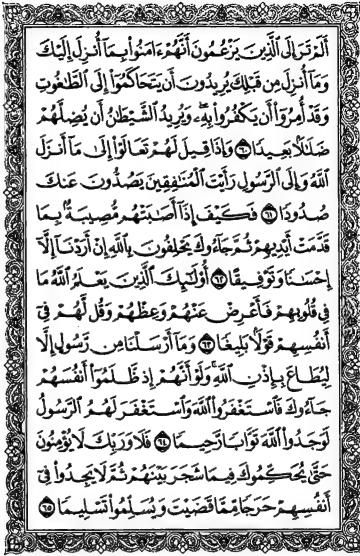 أَلَمْ تَرَ إِلَى ٱلَّذِينَ يَزْعُمُونَ أَنَّهُمْ ءَامَنُوا۟ بِمَآ أُنزِلَ إِلَيْكَ
وَمَآ أُنزِلَ مِن قَبْلِكَ يُرِيدُونَ أَن يَتَحَاكَمُوٓا۟ إِلَى ٱلطَّـٰغُوتِ
وَقَدْ أُمِرُوٓا۟ أَن يَكْفُرُوا۟ بِهِۦ وَيُرِيدُ ٱلشَّيْطَـٰنُ أَن يُضِلَّهُمْ
ضَلَـٰلًۢا بَعِيدًا ٦٠ وَإِذَا قِيلَ لَهُمْ تَعَالَوْا۟ إِلَىٰ مَآ أَنزَلَ
ٱللَّهُ وَإِلَى ٱلرَّسُولِ رَأَيْتَ ٱلْمُنَـٰفِقِينَ يَصُدُّونَ عَنكَ
صُدُودًا ٦١ فَكَيْفَ إِذَآ أَصَـٰبَتْهُم مُّصِيبَةٌۢ بِمَا
قَدَّمَتْ أَيْدِيهِمْ ثُمَّ جَآءُوكَ يَحْلِفُونَ بِٱللَّهِ إِنْ أَرَدْنَآ إِلَّآ
إِحْسَـٰنًا وَتَوْفِيقًا ٦٢ أُو۟لَـٰٓئِكَ ٱلَّذِينَ يَعْلَمُ ٱللَّهُ مَا
فِى قُلُوبِهِمْ فَأَعْرِضْ عَنْهُمْ وَعِظْهُمْ وَقُل لَّهُمْ فِىٓ
أَنفُسِهِمْ قَوْلًۢا بَلِيغًا ٦٣ وَمَآ أَرْسَلْنَا مِن رَّسُولٍ إِلَّا
لِيُطَاعَ بِإِذْنِ ٱللَّهِ ۚ وَلَوْ أَنَّهُمْ إِذ ظَّلَمُوٓا۟ أَنفُسَهُمْ
جَآءُوكَ فَٱسْتَغْفَرُوا۟ ٱللَّهَ وَٱسْتَغْفَرَ لَهُمُ ٱلرَّسُولُ
لَوَجَدُوا۟ ٱللَّهَ تَوَّابًا رَّحِيمًا ٦٤ فَلَا وَرَبِّكَ لَا يُؤْمِنُونَ
حَتَّىٰ يُحَكِّمُوكَ فِيمَا شَجَرَ بَيْنَهُمْ ثُمَّ لَا يَجِدُوا۟ فِىٓ
أَنفُسِهِمْ حَرَجًا مِّمَّا قَضَيْتَ وَيُسَلِّمُوا۟ تَسْلِيمًا ٦٥